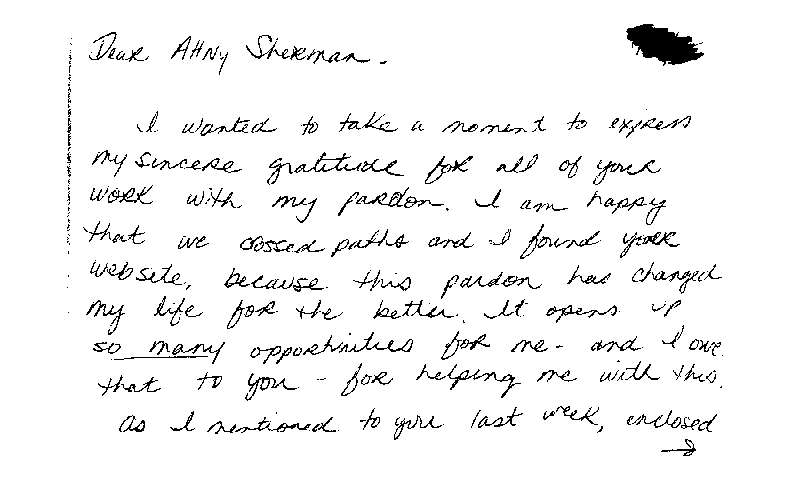 Dear Attny Sherman.
I wanted to take a moment to express
my sincere gratitude for all of your
work with my pardon. I am happy
that we crossed paths and I found your
website, because this pardon has changed
my life for the better. It opens up
so many opportunities for me - and I owe
that to you - for helping me with this.
As I mentioned to you last week, enclosed
→